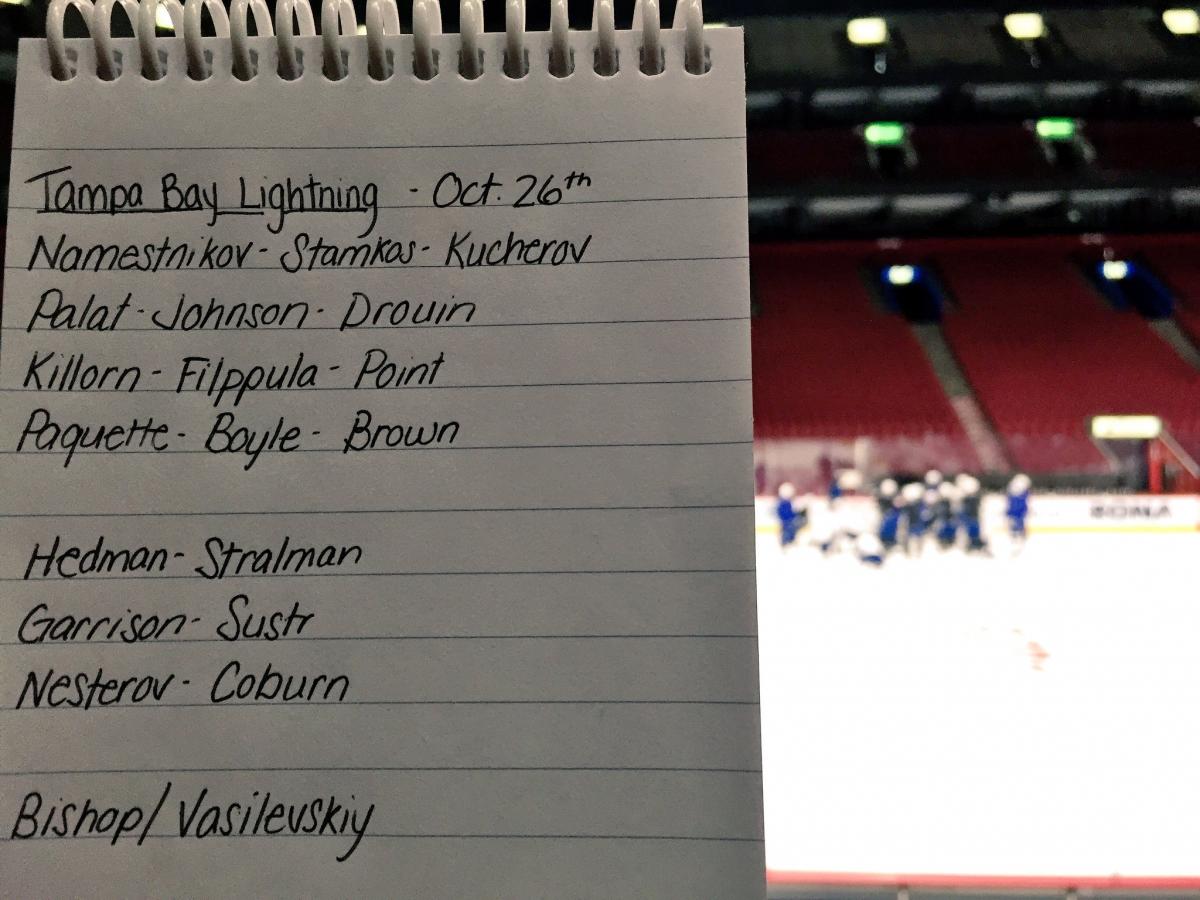 Tampa Bay Lightning - Oct. 26th
Namestnikov - Stamkos - Kucherov
Palat - Johnson - Drouin
Killorn - Filppula - Point
Paquette - Boyle - Brown
Hedman - Stralman
Garrison - Sustr
Nesterov - Coburn
Bishop / Vasilevskiy